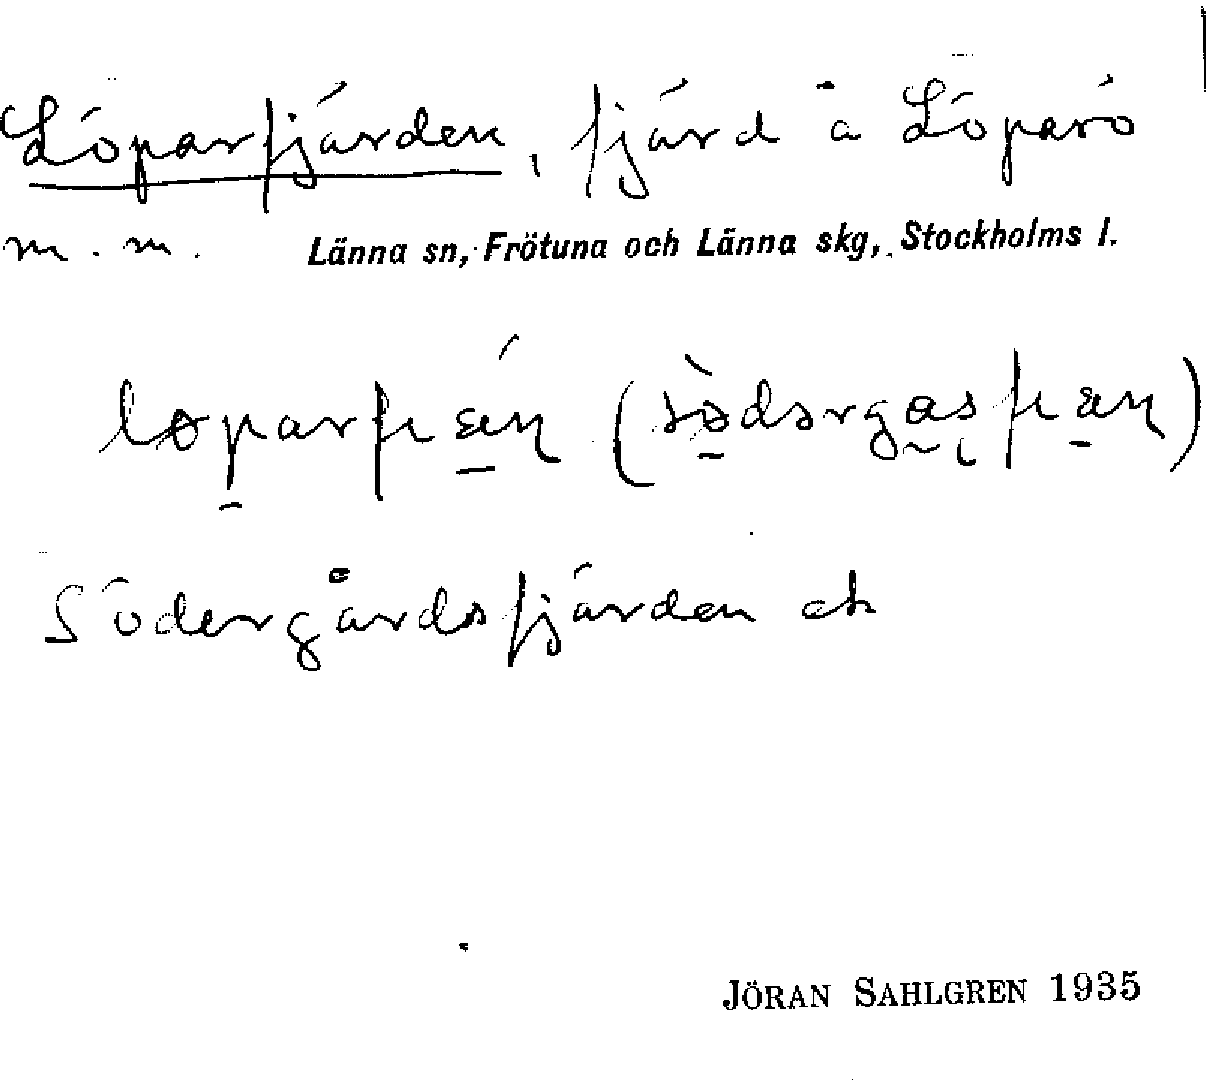 Löparfjärden, fjärd å Löparö
m.m. Länna sn, Frötuna och Länna skg, Stockholms l.
Södergårdsfjärden ek
JÖRAN SAHLGREN 1935